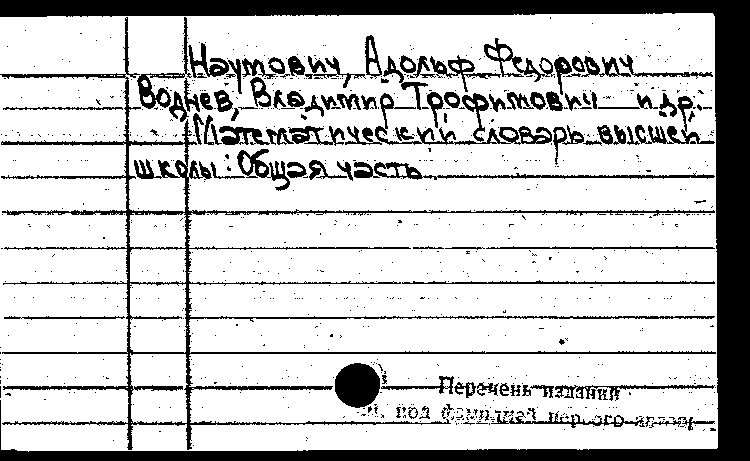 Наумович, Адольф Федорович
Воднев, Владимир Трофимович и др.
Математический словарь высшей
школы: Общая часть
Перечень изданий
под фамилией первого автора